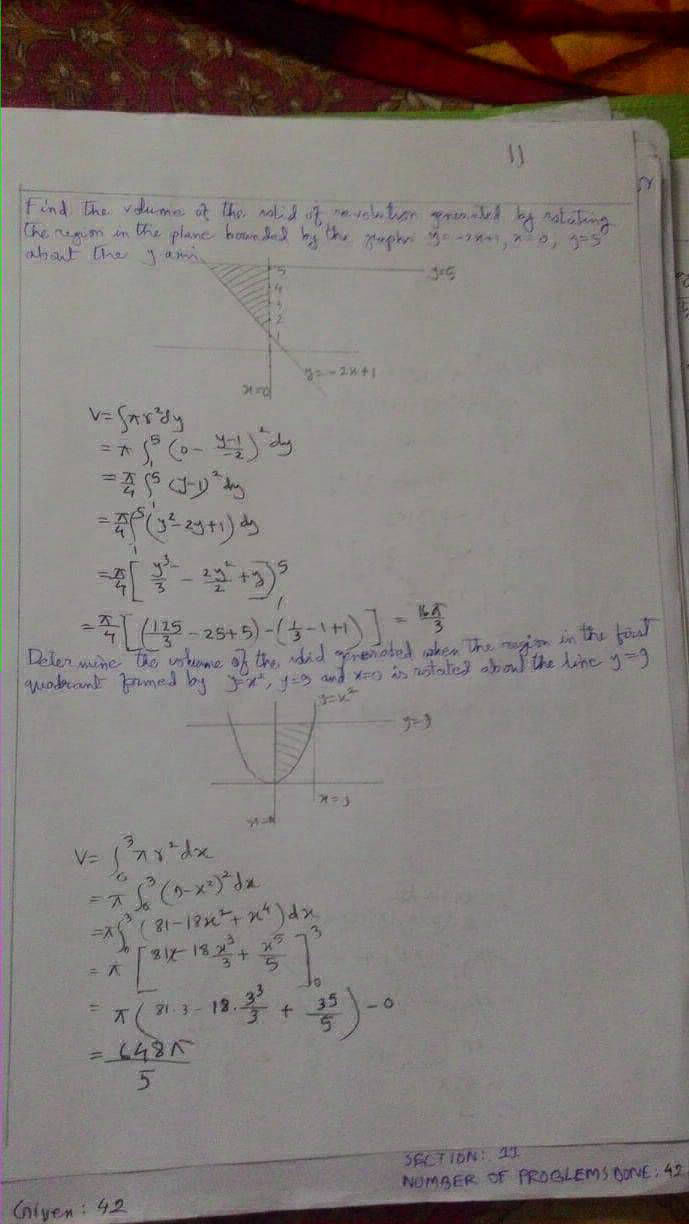 11
Find the volume of the solid of revolution generated by rotating
the region in the plane bounded by the graphs y=-2x+1, x=0, y=5
about the y axis
5
4
3
2
1
y=5
y=-2x+1
x=0
V=∫πr²dy
=π∫₁⁵(0-(y-1)/-2)²dy
=π/4∫₁⁵(y-1)²dy
=π/4∫₁⁵(y²-2y+1)dy
=π/4[y³/3-2y²/2+y]₁⁵
=π/4[(125/3-25+5)-(1/3-1+1)] = 16π/3
Determine the volume of the solid generated when the region in the first
quadrant formed by y=x², y=9 and x=0 is rotated about the line y=9
y=x²
y=9
x=3
V=∫₀³πr²dx
=π∫₀³(9-x²)²dx
=π∫₀³(81-18x²+x⁴)dx
=π[81x-18x³/3+x⁵/5]₀³
=π(81·3-18·3³/3+3⁵/5)-0
=648π/5
SECTION: 11
NUMBER OF PROBLEMS DONE: 42
Given: 42